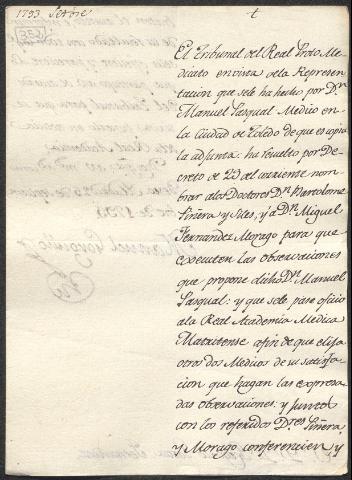 1793 Setbre
t
352
El Tribunal del Real Proto Me-
dicato en vista de la Represen-
tacion que se le ha hecho por Dn
Manuel Pasqual Medico en
la Ciudad de Toledo de que es copia
la adjunta: ha resuelto por De-
creto de 20 del corriente nom-
brar a los Doctores Dn Bartolome
Piñera y Siles, y á Dn Miguel
Fernandez Morago para que
executen las observaciones
que propone dicho Dn Manuel
Pasqual: y que se le pase oficio
a la Real Academia Medica
Matritense afin de que elija
otros dos Medicos de su satisfa-
cion que hagan las expresa-
das observaciones: y juntos
con los referidos Dres Piñera,
y Morago conferencien, y